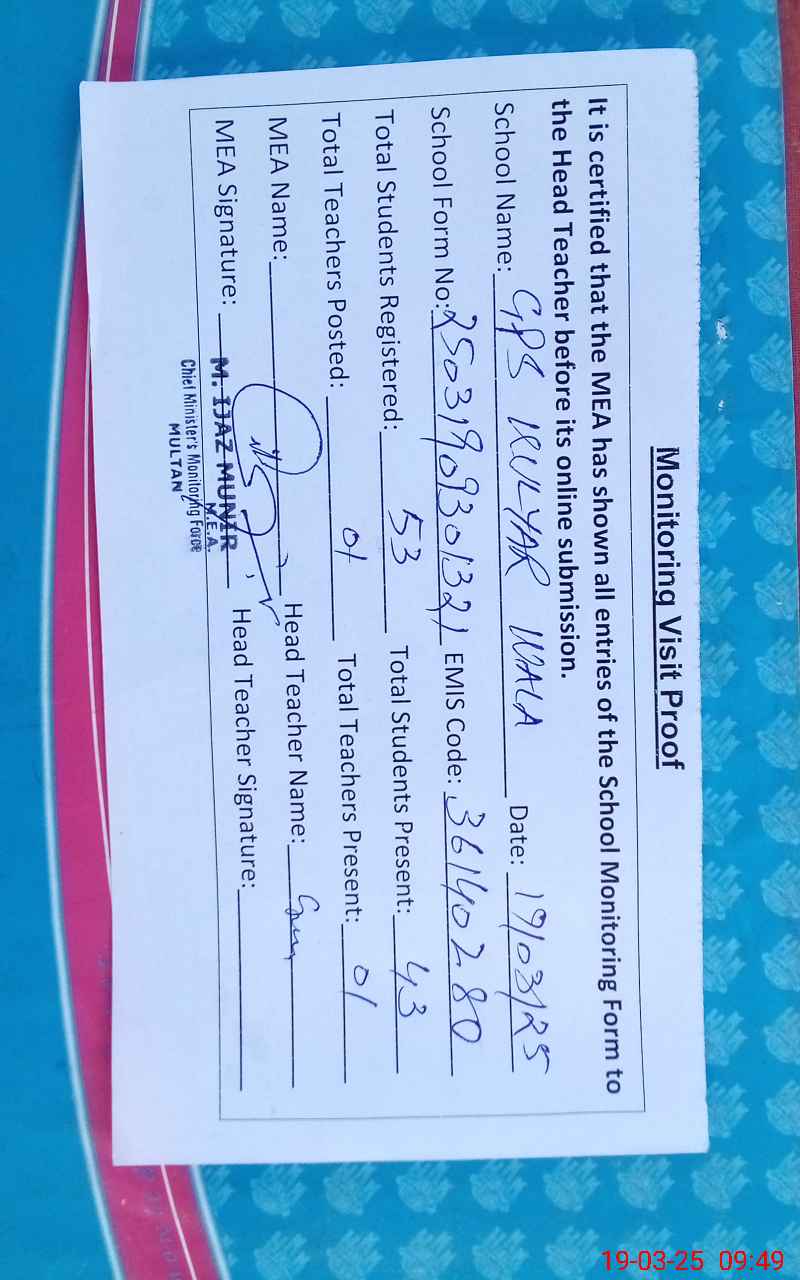 Monitoring Visit Proof
It is certified that the MEA has shown all entries of the School Monitoring Form to
the Head Teacher before its online submission.
School Name: GPS KULYAR WALA Date: 19/03/25
School Form No: 25031909301321 EMIS Code: 36140280
Total Students Registered: 53 Total Students Present: 43
Total Teachers Posted: 01 Total Teachers Present: 01
MEA Name: Head Teacher Name:
MEA Signature: Head Teacher Signature:
M. IJAZ MUNIR
M.E.A.
Chief Minister's Monitoring Force
MULTAN
19-03-25 09:49